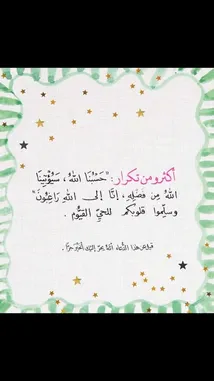 أكثرو من تكرار: "حَسْبُنَا اللهُ، سَيُؤْتِينَا
اللهُ مِن فَضْلِهِ، إِنَّا إِلى اللهِ رَاغِبُونَ"
وسلِّموا قلوبكم للحيِّ القيُّوم .
هذا الدُّعاء